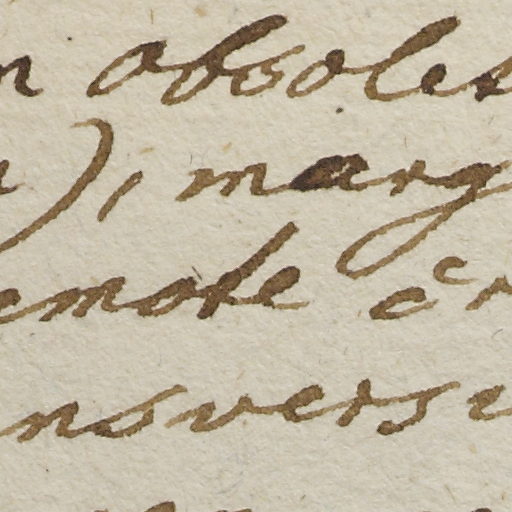 n absoles
), marg
emote cr
nsverse